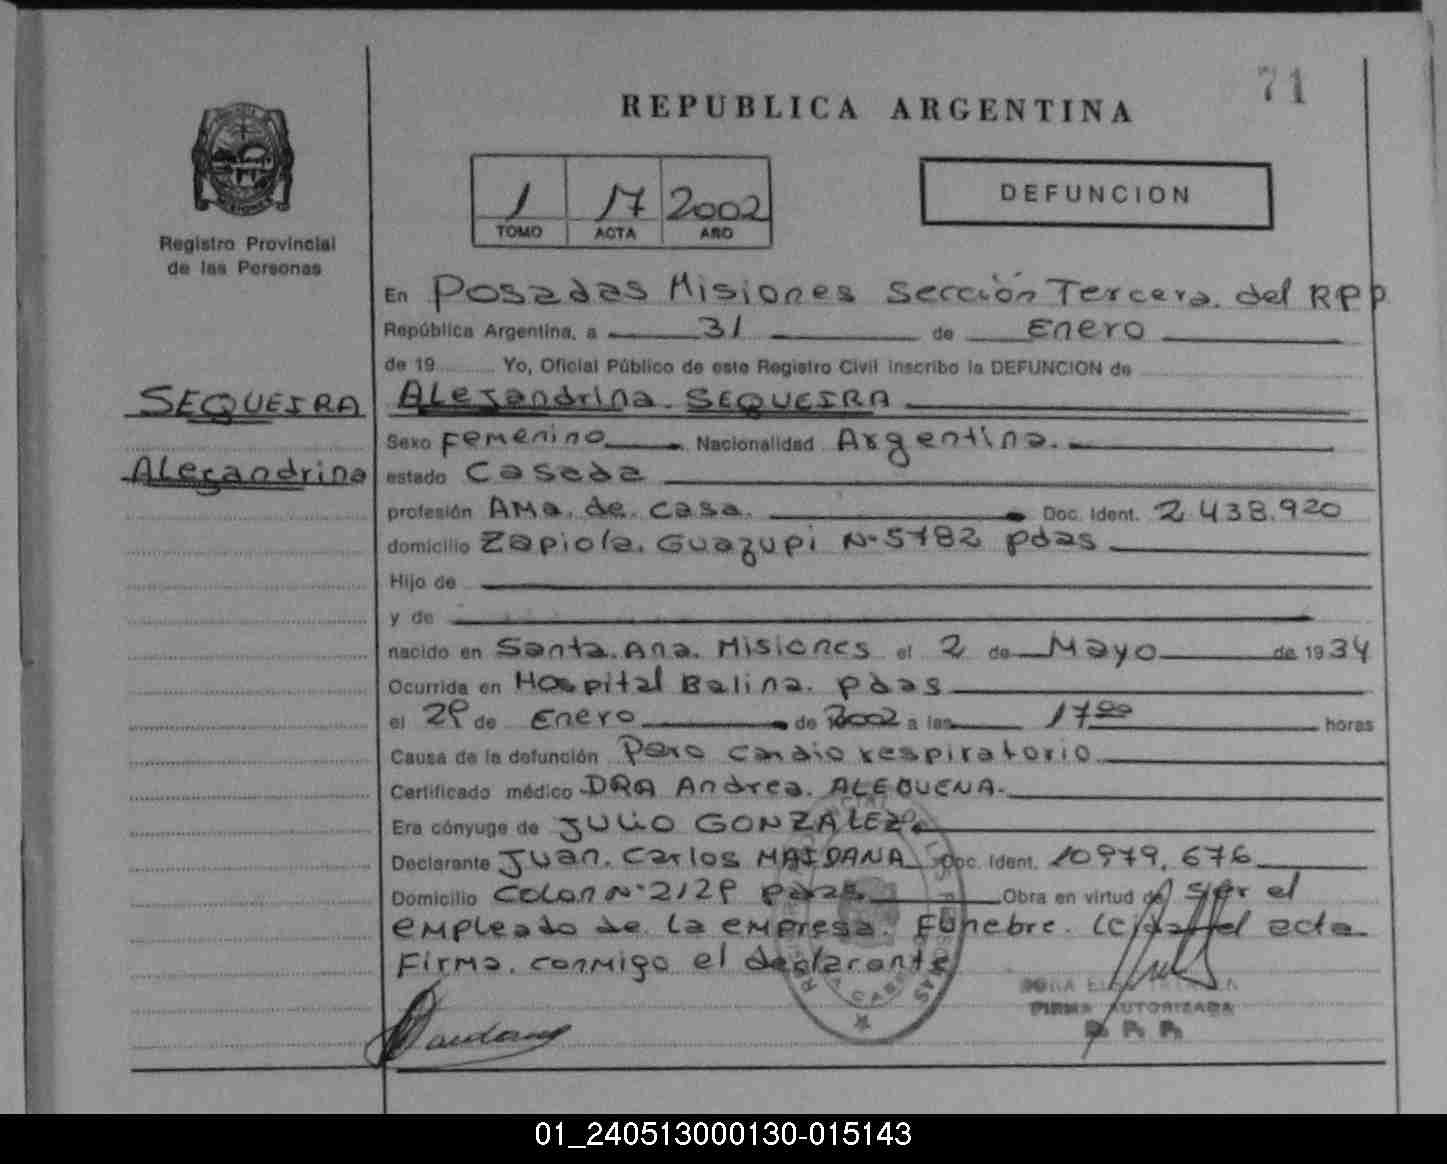 71
REPUBLICA ARGENTINA
1 17 2002
TOMO ACTA AÑO
DEFUNCION
Registro Provincial
de las Personas
En Posadas Misiones Sección Tercera. del RPP
República Argentina, a 31 de Enero
de 19 Yo, Oficial Público de este Registro Civil inscribo la DEFUNCION de
SEQUEIRA
Alejandrina. SEQUEIRA
Sexo Femenino Nacionalidad Argentina.
Alejandrina
estado Casada
profesión Ama. de. casa. Doc. Ident. 2 438.920
domicilio Zapiola. Guazupi N° 5782 pdas
Hijo de
y de
nacido en Santa. Ana. Misiones el 2 de Mayo de 1934
Ocurrida en Hospital Balina. pdas
el 29 de Enero de 2002 a las 17 00 horas
Causa de la defunción Paro cardio respiratorio
Certificado médico DRA Andrea.
Era cónyuge de JULIO GONZALEZ.
Declarante Juan. Carlos MAIDANA Doc. Ident. 10979.676
Domicilio Colon N° 2129 pdas. Obra en virtud de ser el
empleado de la empresa. Fúnebre. leida el acta
Firma. conmigo el declarante
FIRMA AUTORIZADA
R. P. P.
01_240513000130-015143